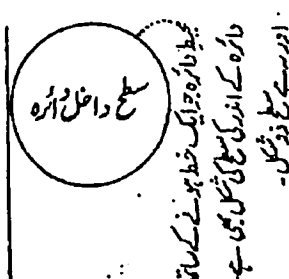 سطح داخل دائرہ
محیط دائرہ جو ایک خط ہونے کے ساتھ
دائرہ کے اندر کی سطح کی شکل بھی ہے
اور یہ سطح ذو شکل -